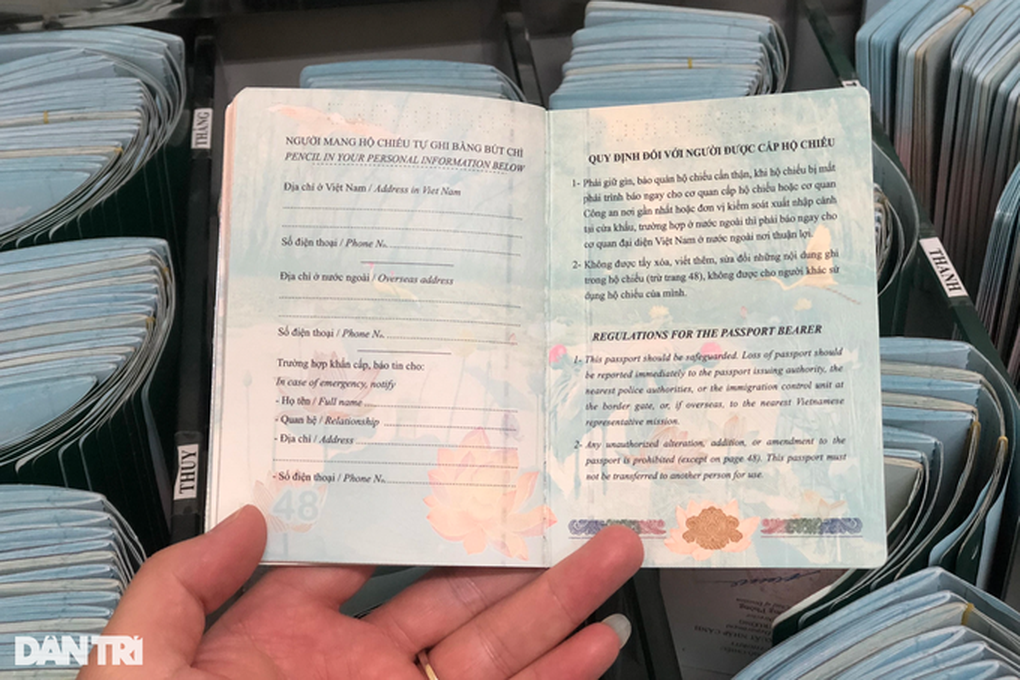 THẮNG
THUỲ
THÀNH
NGƯỜI MANG HỘ CHIẾU TỰ GHI BẰNG BÚT CHÌ
PENCIL IN YOUR PERSONAL INFORMATION BELOW
Địa chỉ ở Việt Nam / Address in Viet Nam
Số điện thoại / Phone No.
Địa chỉ ở nước ngoài / Overseas address
Số điện thoại / Phone No.
Trường hợp khẩn cấp, báo tin cho:
In case of emergency, notify
- Họ tên / Full name
- Quan hệ / Relationship
- Địa chỉ / Address
- Số điện thoại / Phone No.
48
QUY ĐỊNH ĐỐI VỚI NGƯỜI ĐƯỢC CẤP HỘ CHIẾU
1- Phải giữ gìn, bảo quản hộ chiếu cẩn thận, khi hộ chiếu bị mất
phải trình báo ngay cho cơ quan cấp hộ chiếu hoặc cơ quan
Công an nơi gần nhất hoặc đơn vị kiểm soát xuất nhập cảnh
tại cửa khẩu, trường hợp ở nước ngoài thì phải báo ngay cho
cơ quan đại diện Việt Nam ở nước ngoài nơi thuận lợi.
2- Không được tẩy xóa, viết thêm, sửa đổi những nội dung ghi
trong hộ chiếu (trừ trang 48), không được cho người khác sử
dụng hộ chiếu của mình.
REGULATIONS FOR THE PASSPORT BEARER
1- This passport should be safeguarded. Loss of passport should
be reported immediately to the passport issuing authority, the
nearest police authorities, or the immigration control unit at
the border gate, or, if overseas, to the nearest Vietnamese
representative mission.
2- Any unauthorized alteration, addition, or amendment to the
passport is prohibited (except on page 48). This passport must
not be transferred to another person for use.
DÂN TRÍ